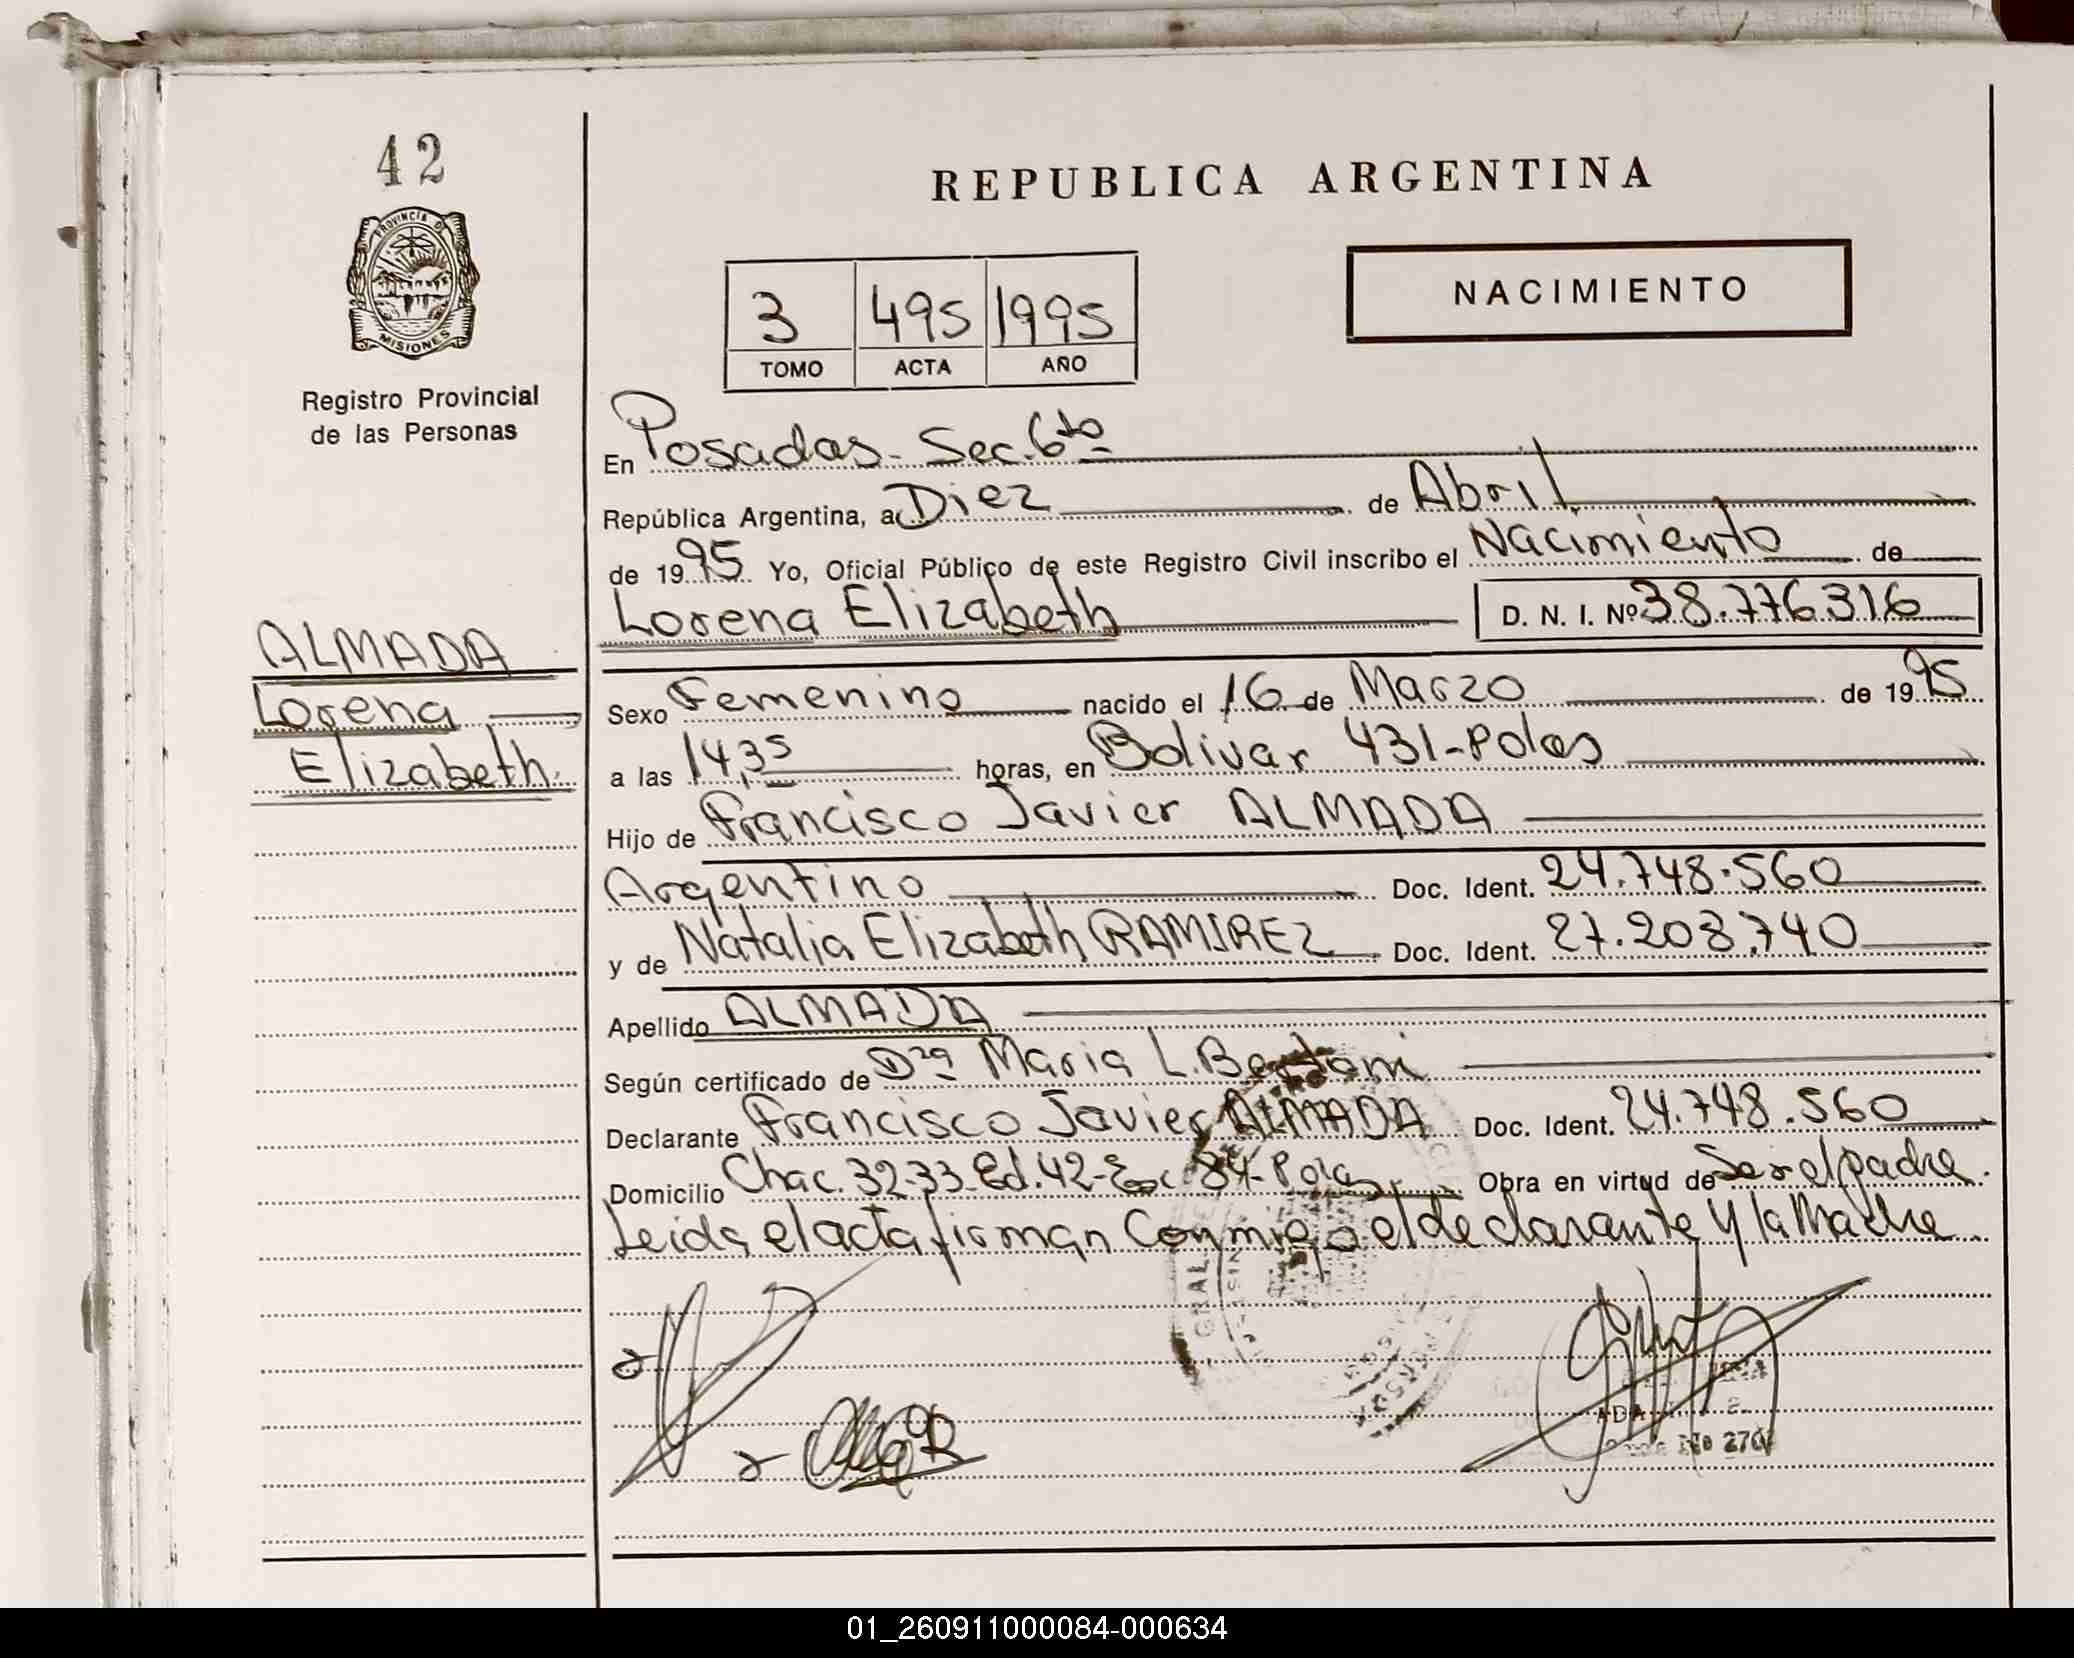 42
PROVINCIA D
MISIONES
Registro Provincial
de las Personas
ALMADA
Lorena
Elizabeth
REPUBLICA ARGENTINA
NACIMIENTO
3 495 1995
TOMO ACTA AÑO
En Posadas - Sec. 6to
República Argentina, a Diez de Abril
de 1995 Yo, Oficial Público de este Registro Civil inscribo el Nacimiento de
Lorena Elizabeth D. N. I. Nº 38.776.316
Sexo Femenino nacido el 16 de Marzo de 1995
a las 14,35 horas, en Bolivar 431-Pdas
Hijo de Francisco Javier ALMADA
Argentino Doc. Ident. 24.748.560
y de Natalia Elizabeth RAMIREZ Doc. Ident. 27.208.740
Apellido ALMADA
Según certificado de Dra Maria L. Bertoni
Declarante Francisco Javier ALMADA Doc. Ident. 24.748.560
Domicilio Chac. 32-33-Ed. 42-Esc 84-Pdas Obra en virtud de Ser el padre.
Leida el acta firman Conmigo el declarante y la Madre
01_260911000084-000634